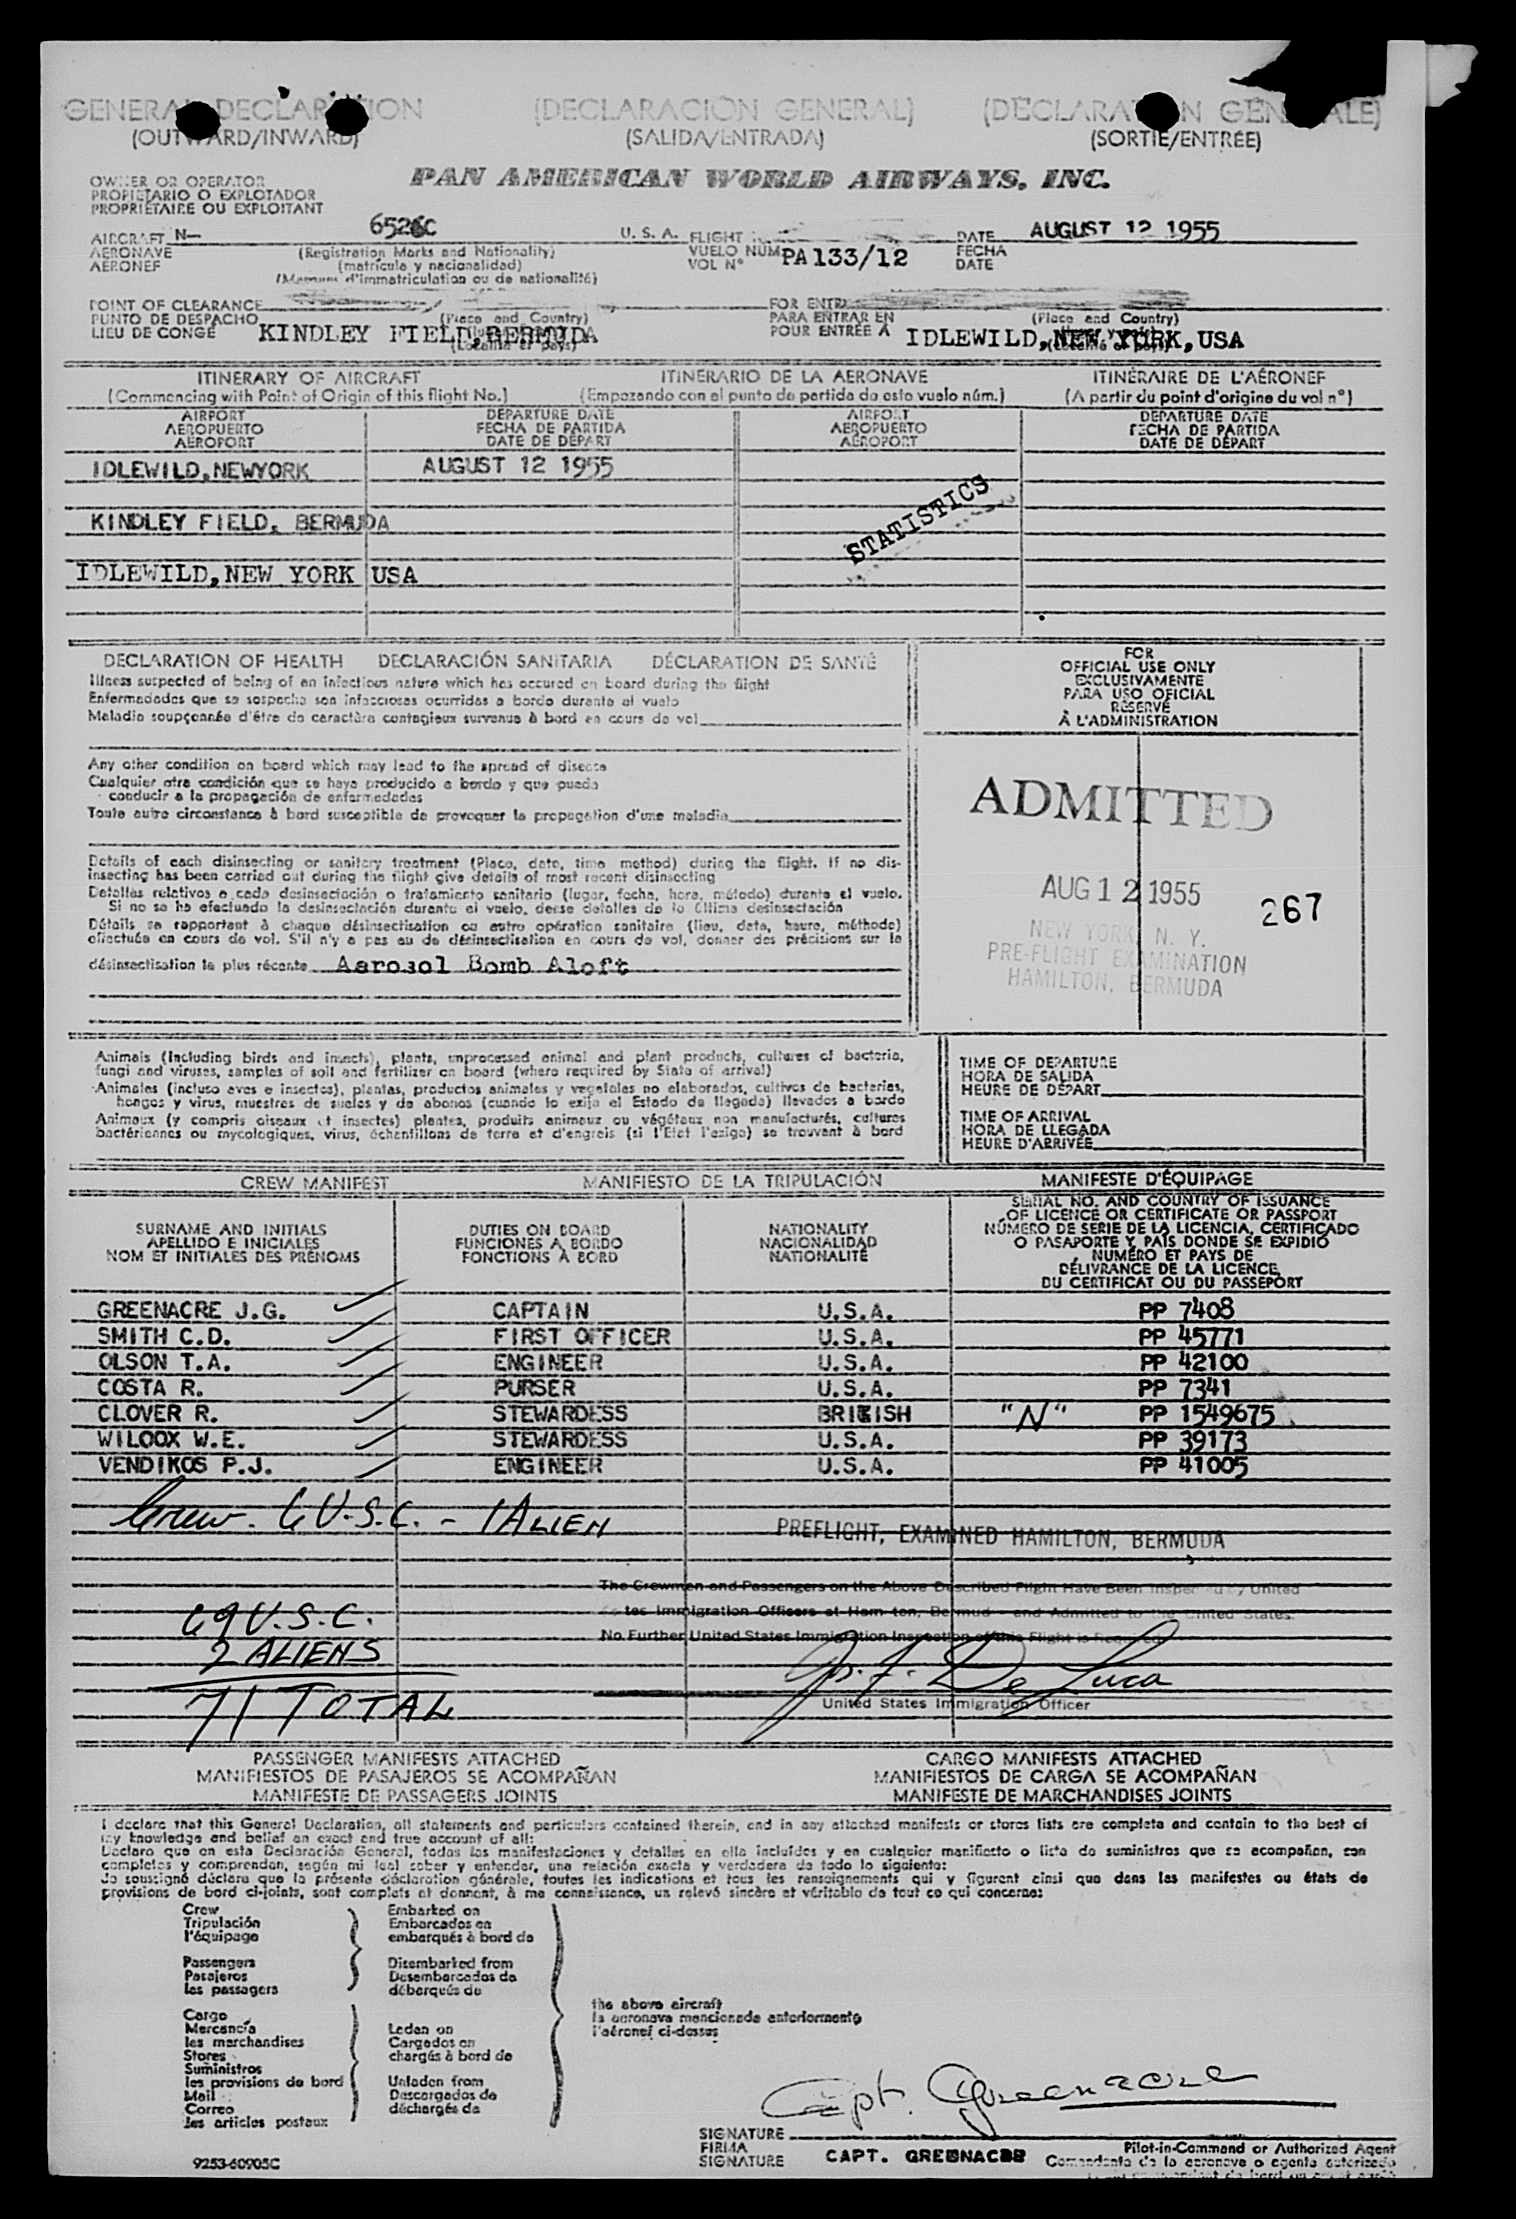 GENERAL DECLARATION (DECLARACIÓN GENERAL) (DÉCLARATION GÉNÉRALE)
(OUTWARD/INWARD) (SALIDA/ENTRADA) (SORTIE/ENTRÉE)
OWNER OR OPERATOR
PROPIETARIO O EXPLOTADOR
PROPRIÉTAIRE OU EXPLOITANT
PAN AMERICAN WORLD AIRWAYS, INC.
AIRCRAFT N— 6526C U. S. A. FLIGHT DATE AUGUST 12 1955
AERONAVE (Registration Marks and Nationality) VUELO NUM. PA133/12 FECHA
AÉRONEF (matrícula y nacionalidad) VOL N° DATE
d'immatriculation ou de nationalité)
POINT OF CLEARANCE FOR ENTRY
PUNTO DE DESPACHO (Place and Country) PARA ENTRAR EN (Place and Country)
LIEU DE CONGÉ KINDLEY FIELD, BERMUDA POUR ENTRÉE A IDLEWILD, NEW YORK, USA
ITINERARY OF AIRCRAFT ITINERARIO DE LA AERONAVE ITINÉRAIRE DE L'AÉRONEF
(Commencing with Point of Origin of this flight No.) (Empezando con el punto de partida de este vuelo núm.) (A partir du point d'origine du vol n°)
AIRPORT DEPARTURE DATE AIRPORT DEPARTURE DATE
AEROPUERTO FECHA DE PARTIDA AEROPUERTO FECHA DE PARTIDA
AÉROPORT DATE DE DÉPART AÉROPORT DATE DE DÉPART
IDLEWILD, NEWYORK AUGUST 12 1955
STATISTICS
KINDLEY FIELD, BERMUDA
IDLEWILD, NEW YORK USA
DECLARATION OF HEALTH DECLARACIÓN SANITARIA DÉCLARATION DE SANTÉ
Illness suspected of being of an infectious nature which has occured on board during the flight
Enfermedades que se sospecha son infecciosas ocurridas a bordo durante el vuelo
Maladie soupçonnée d'être de caractère contagieux survenue à bord en cours de vol
FOR
OFFICIAL USE ONLY
EXCLUSIVAMENTE
PARA USO OFICIAL
RÉSERVÉ
À L'ADMINISTRATION
Any other condition on board which may lead to the spread of disease
Cualquier otra condición que se haya producido a bordo y que pueda
conducir a la propagación de enfermedades
Toute autre circonstance à bord susceptible de provoquer la propagation d'une maladie
ADMITTED
AUG 12 1955 267
NEW YORK, N. Y.
PRE-FLIGHT EXAMINATION
HAMILTON, BERMUDA
Details of each disinsecting or sanitary treatment (Place, date, time method) during the flight. If no dis-
insecting has been carried out during the flight give details of most recent disinsecting
Detalles relativos a cada desinsectación o tratamiento sanitario (lugar, fecha, hora, método) durante el vuelo.
Si no se ha efectuado la desinsectación durante el vuelo, dense detalles de la última desinsectación
Détails se rapportant à chaque désinsectisation ou autre opération sanitaire (lieu, date, heure, méthode)
effectuée en cours de vol. S'il n'y a pas eu de désinsectisation en cours de vol, donner des précisions sur la
désinsectisation la plus récente Aerosol Bomb Aloft
Animals (Including birds and insects), plants, unprocessed animal and plant products, cultures of bacteria,
fungi and viruses, samples of soil and fertilizer on board (where required by State of arrival)
Animales (incluso aves e insectos), plantas, productos animales y vegetales no elaborados, cultivos de bacterias,
hongos y virus, muestras de suelos y de abonos (cuando lo exija el Estado de llegada) llevados a bordo
Animaux (y compris oiseaux et insectes) plantes, produits animaux ou végétaux non manufacturés, cultures
bactériennes ou mycologiques, virus, échantillons de terre et d'engrais (si l'Etat l'exige) se trouvant à bord
TIME OF DEPARTURE
HORA DE SALIDA
HEURE DE DÉPART
TIME OF ARRIVAL
HORA DE LLEGADA
HEURE D'ARRIVÉE
CREW MANIFEST MANIFIESTO DE LA TRIPULACIÓN MANIFESTE D'ÉQUIPAGE
SURNAME AND INITIALS
APELLIDO E INICIALES
NOM ET INITIALES DES PRÉNOMS
DUTIES ON BOARD
FUNCIONES A BORDO
FONCTIONS À BORD
NATIONALITY
NACIONALIDAD
NATIONALITÉ
SERIAL NO. AND COUNTRY OF ISSUANCE
OF LICENCE OR CERTIFICATE OR PASSPORT
NÚMERO DE SERIE DE LA LICENCIA, CERTIFICADO
O PASAPORTE Y PAÍS DONDE SE EXPIDIÓ
NUMÉRO ET PAYS DE
DÉLIVRANCE DE LA LICENCE
DU CERTIFICAT OU DU PASSEPORT
GREENACRE J.G. CAPTAIN U.S.A. PP 7408
SMITH C.D. FIRST OFFICER U.S.A. PP 45771
OLSON T.A. ENGINEER U.S.A. PP 42100
COSTA R. PURSER U.S.A. PP 7341
CLOVER R. STEWARDESS BRITISH "N" PP 1549675
WILCOX W.E. STEWARDESS U.S.A. PP 39173
VENDIKOS P.J. ENGINEER U.S.A. PP 41005
Crew. 6 U.S.C. - 1 ALIEN
PREFLIGHT, EXAMINED HAMILTON, BERMUDA
The Crewmen and Passengers on the Above Described Flight Have Been Inspected by United
States Immigration Officers at Hamilton, Bermuda and Admitted to the United States.
No Further United States Immigration Inspection of this Flight is Required.
69 U.S.C.
2 ALIENS
71 TOTAL
De Luca
United States Immigration Officer
PASSENGER MANIFESTS ATTACHED CARGO MANIFESTS ATTACHED
MANIFIESTOS DE PASAJEROS SE ACOMPAÑAN MANIFIESTOS DE CARGA SE ACOMPAÑAN
MANIFESTE DE PASSAGERS JOINTS MANIFESTE DE MARCHANDISES JOINTS
I declare that this General Declaration, all statements and particulars contained therein, and in any attached manifests or stores lists are complete and contain to the best of
my knowledge and belief an exact and true account of all:
Declaro que en esta Declaración General, todas las manifestaciones y detalles en ella incluídos y en cualquier manifiesto o lista de suministros que se acompañan, son
completos y comprenden, según mi leal saber y entender, una relación exacta y verdadera de todo lo siguiente:
Je soussigné déclare que la présente déclaration générale, toutes les indications et tous les renseignements qui y figurent ainsi que dans les manifestes ou états de
provisions de bord ci-joints, sont complets et donnent, à ma connaissance, un relevé sincère et véritable de tout ce qui concerne:
Crew Embarked on
Tripulación Embarcados en
l'équipage embarqués à bord de
Passengers Disembarked from
Pasajeros Desembarcados de
les passagers débarqués de
the above aircraft
la aeronave mencionada anteriormente
l'aéronef ci-dessus
Cargo
Mercancía Laden on
les marchandises Cargados en
Stores chargés à bord de
Suministros
les provisions de bord Unladen from
Mail Descargados de
Correo déchargés de
les articles postaux
Capt. Greenacre
SIGNATURE
FIRMA
SIGNATURE
CAPT. GREENACRE
Pilot-in-Command or Authorized Agent
Comandante de la aeronave o agente autorizado
9253-60905C